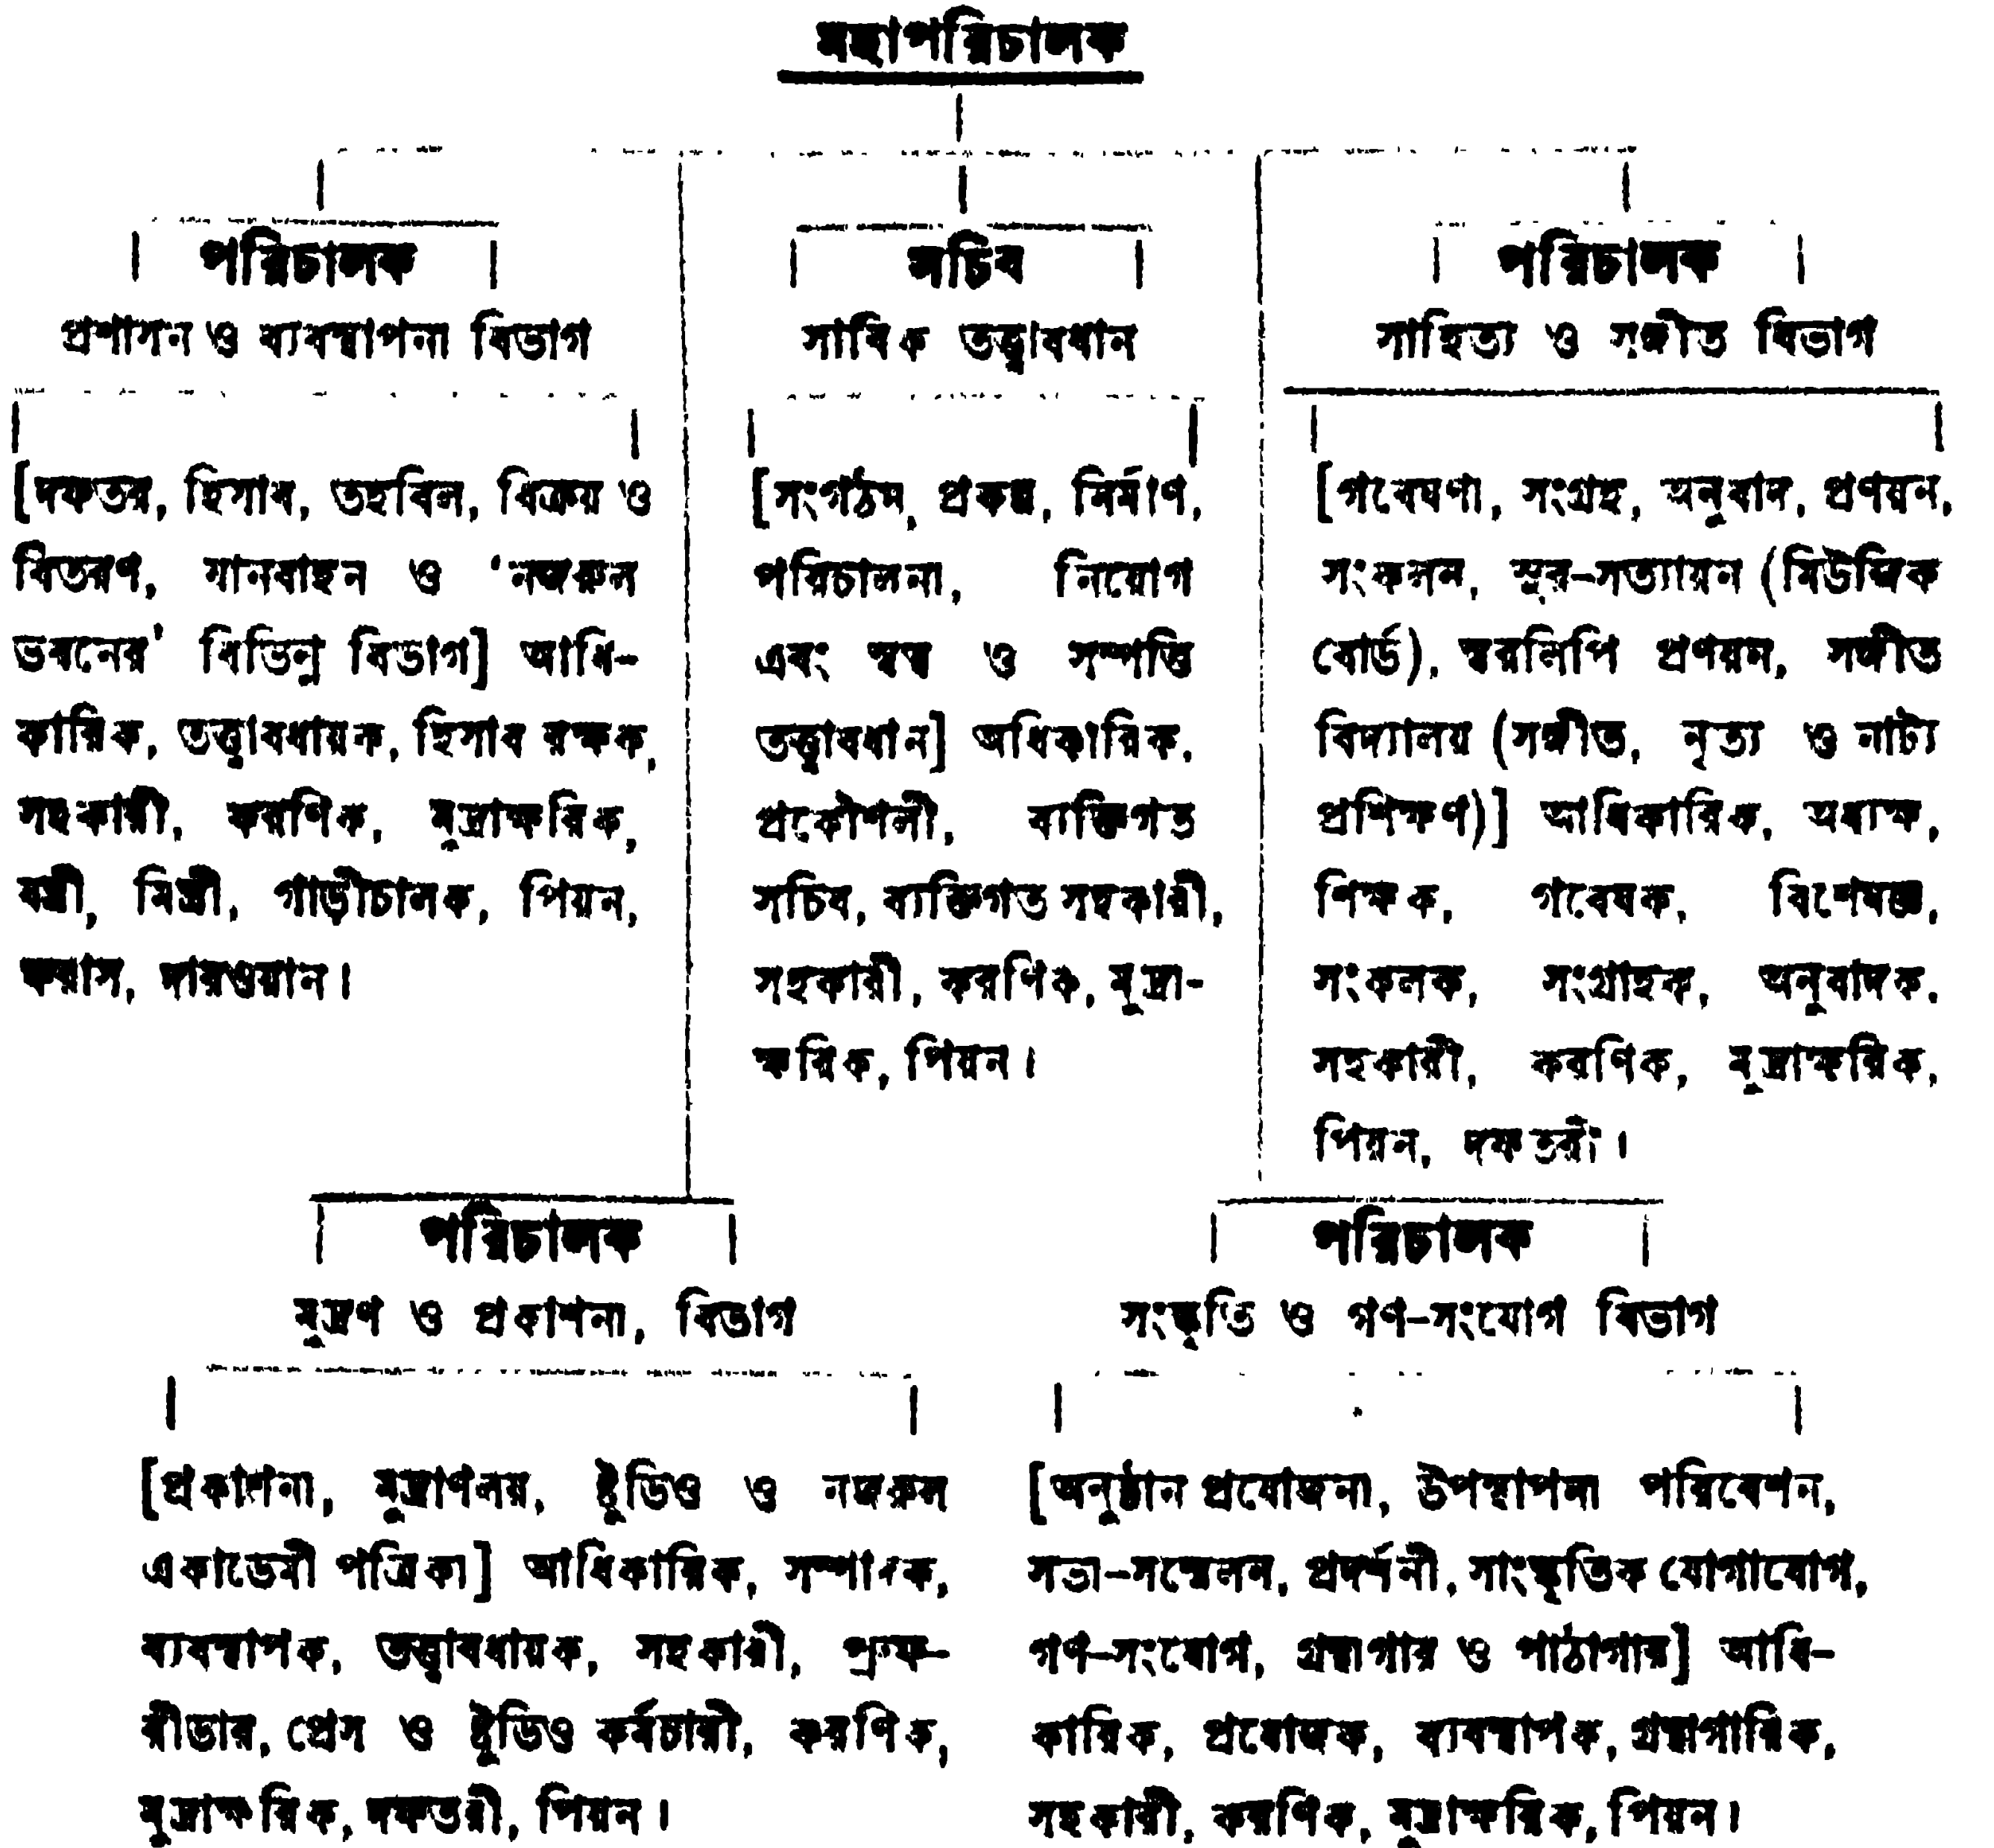 মহাপরিচালক
পরিচালক
প্রশাসন ও ব্যবস্থাপনা বিভাগ
[দফতর, হিসাব, তহবিল, বিক্রয় ও
বিতরণ, যানবাহন ও 'নজরুল
ভবনের' বিভিন্ন বিভাগ] আধি-
কারিক, তত্ত্বাবধায়ক, হিসাব রক্ষক,
সহকারী, করণিক, মুদ্রাক্ষরিক,
যন্ত্রী, মিস্ত্রী, গাড়ীচালক, পিয়ন,
ফরাস, দারওয়ান।
সচিব
সার্বিক তত্ত্বাবধান
[সংগঠন, প্রকল্প, নির্মাণ,
পরিচালনা, নিয়োগ
এবং স্বত্ব ও সম্পত্তি
তত্ত্বাবধান] অধিকারিক,
প্রকৌশলী, ব্যক্তিগত
সচিব, ব্যক্তিগত সহকারী,
সহকারী, করণিক, মুদ্রা-
ক্ষরিক, পিয়ন।
পরিচালক
সাহিত্য ও সঙ্গীত বিভাগ
[গবেষণা, সংগ্রহ, অনুবাদ, প্রণয়ন,
সংকলন, সুর-সত্যায়ন (মিউজিক
বোর্ড), স্বরলিপি প্রণয়ন, সঙ্গীত
বিদ্যালয় (সঙ্গীত, নৃত্য ও নাট্য
প্রশিক্ষণ)] আধিকারিক, অধ্যক্ষ,
শিক্ষক, গবেষক, বিশেষজ্ঞ,
সংকলক, সংগ্রাহক, অনুবাদক,
সহকারী, করণিক, মুদ্রাক্ষরিক,
পিয়ন, দফতরী।
পরিচালক
মুদ্রণ ও প্রকাশনা, বিভাগ
[প্রকাশনা, মুদ্রাণলয়, ষ্টুডিও ও নজরুল
একাডেমী পত্রিকা] আধিকারিক, সম্পাদক,
ব্যবস্থাপক, তত্ত্বাবধায়ক, সহকারী, প্রুফ-
রীডার, প্রেস ও ষ্টুডিও কর্মচারী, করণিক,
মুদ্রাক্ষরিক, দফতরী, পিয়ন।
পরিচালক
সংস্কৃতি ও গণ-সংযোগ বিভাগ
[অনুষ্ঠান প্রযোজনা, উপস্থাপনা পরিবেশন,
সভা-সম্মেলন, প্রদর্শনী, সাংস্কৃতিক যোগাযোগ,
গণ-সংযোগ, গ্রন্থাগার ও পাঠাগার] আধি-
কারিক, প্রযোজক, ব্যবস্থাপক, গ্রন্থাগারিক,
সহকারী, করণিক, মুদ্রাক্ষরিক, পিয়ন।